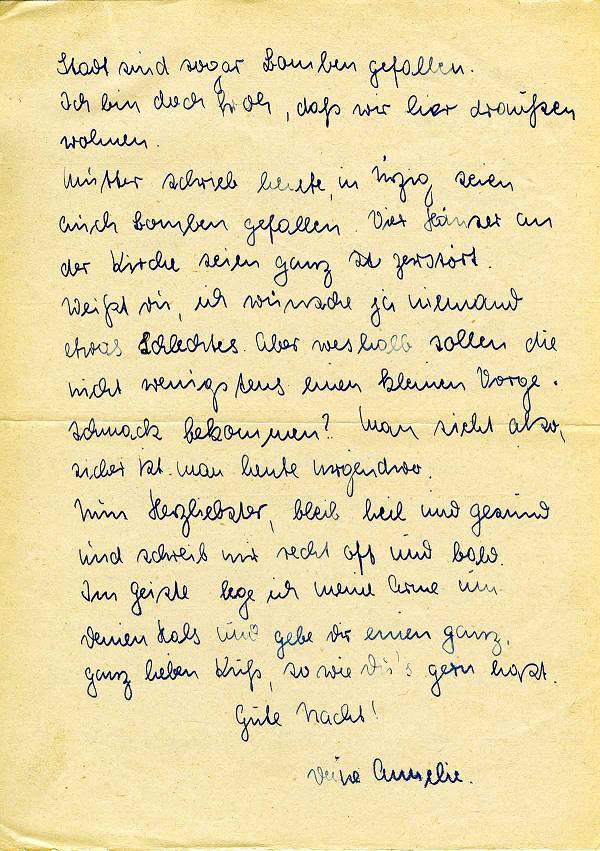 Stadt sind sogar Bomben gefallen.
Ich bin doch froh, daß wir hier draußen
wohnen.
Mutter schrieb heute, in Ürzig seien
auch Bomben gefallen. Vier Häuser an
der Kirche seien ganz zerstört.
Weißt du, ich wünsche ja niemand
etwas Schlechtes. Aber weshalb sollen die
nicht wenigstens einen kleinen Vorge-
schmack bekommen? Man sieht also,
sicher ist man heute nirgendwo.
Nun Herzliebster, bleib heil und gesund
und schreib mir recht oft und bald.
Im Geiste lege ich meine Arme um
Deinen Hals und gebe Dir einen ganz,
ganz lieben Kuß, so wie Du's gern hast.
Gute Nacht!
Deine Annelie.